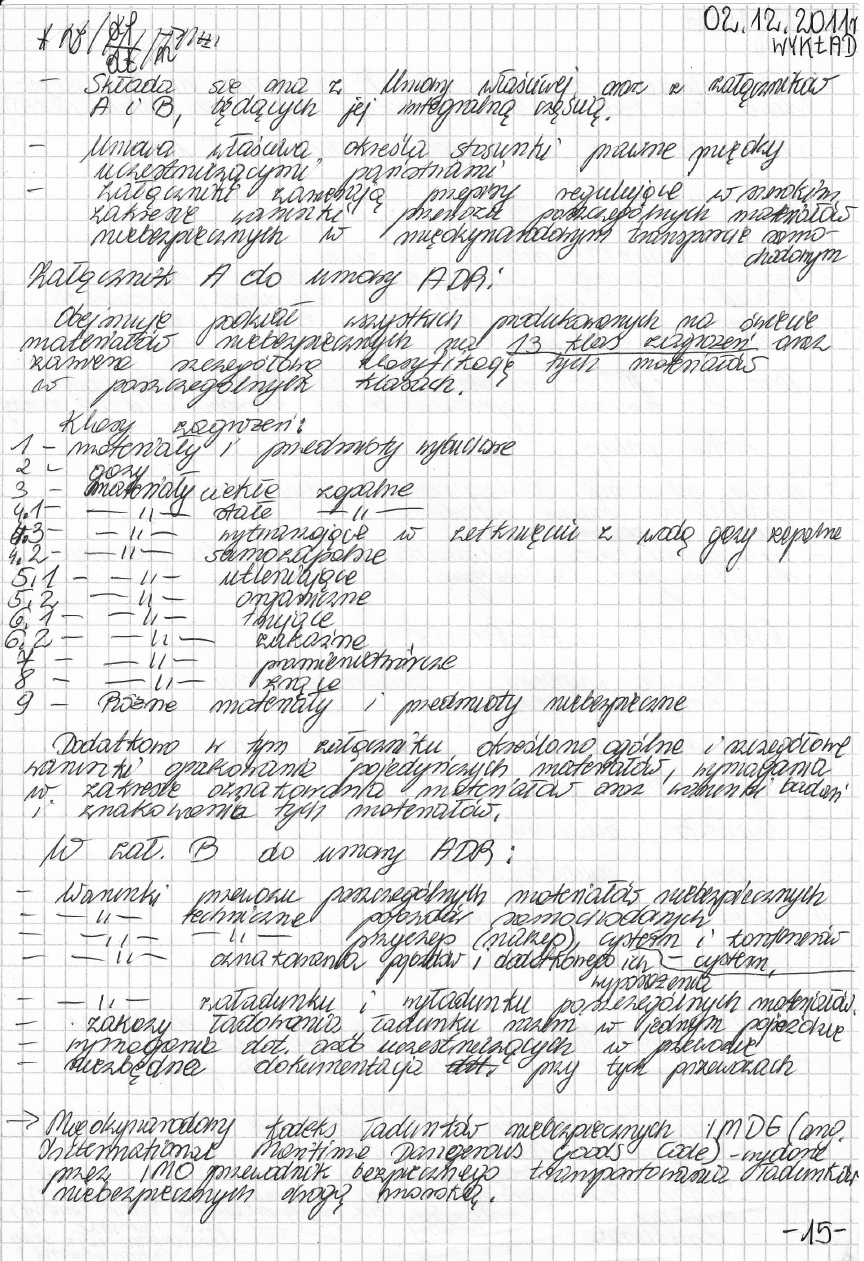 02.12.2011r
WYKŁAD
- Składa się ona z Umowy właściwej oraz z załączników
A i B, będących jej integralną częścią.
- Umowa właściwa określa stosunki prawne między
uczestniczącymi państwami
- Załączniki zawierają przepisy regulujące w szerokim
zakresie warunki przewozu poszczególnych materiałów
niebezpiecznych w międzynarodowym transporcie samo-
chodowym
Załącznik A do umowy ADR:
Obejmuje podział wszystkich produkowanych na świecie
materiałów niebezpiecznych na 13 klas zagrożeń oraz
zawiera szczegółową klasyfikację tych materiałów
w poszczególnych klasach.
Klasy zagrożeń:
1 - materiały i przedmioty wybuchowe
2 - gazy
3 - materiały ciekłe zapalne
4.1 - — 〃 — stałe — 〃 —
4.3 - — 〃 — wytwarzające w zetknięciu z wodą gazy zapalne
4.2 - — 〃 — samozapalne
5.1 - — 〃 — utleniające
5.2 - — 〃 — organiczne
6.1 - — 〃 — trujące
6.2 - — 〃 — zakaźne
7 - — 〃 — promieniotwórcze
8 - — 〃 — żrące
9 - Różne materiały i przedmioty niebezpieczne
Dodatkowo w tym załączniku określono ogólne i szczegółowe
warunki opakowania pojedyńczych materiałów, wymagania
w zakresie oznakowania materiałów oraz warunki badań
i znakowania tych materiałów.
W zał. B do umowy ADR:
- Warunki przewozu poszczególnych materiałów niebezpiecznych
- — 〃 — techniczne pojazdów samochodowych
- — 〃 — — 〃 — przyczep (naczep), cystern i kontenerów
- — 〃 — oznakowania pojazdów i dodatkowego ich - cystern,
wyposażenia
- — 〃 — załadunku i wyładunku poszczególnych materiałów.
- zakazy ładowania ładunku razem w jednym pojeździe
- wymagania dot. osób uczestniczących w przewozie
- niezbędna dokumentacja przy tych przewozach
→ Międzynarodowy kodeks ładunków niebezpiecznych IMDG (ang.
International Maritime Dangerous Goods Code) - wydany
przez IMO przewodnik bezpiecznego transportowania ładunków
niebezpiecznych drogą morską.
-15-